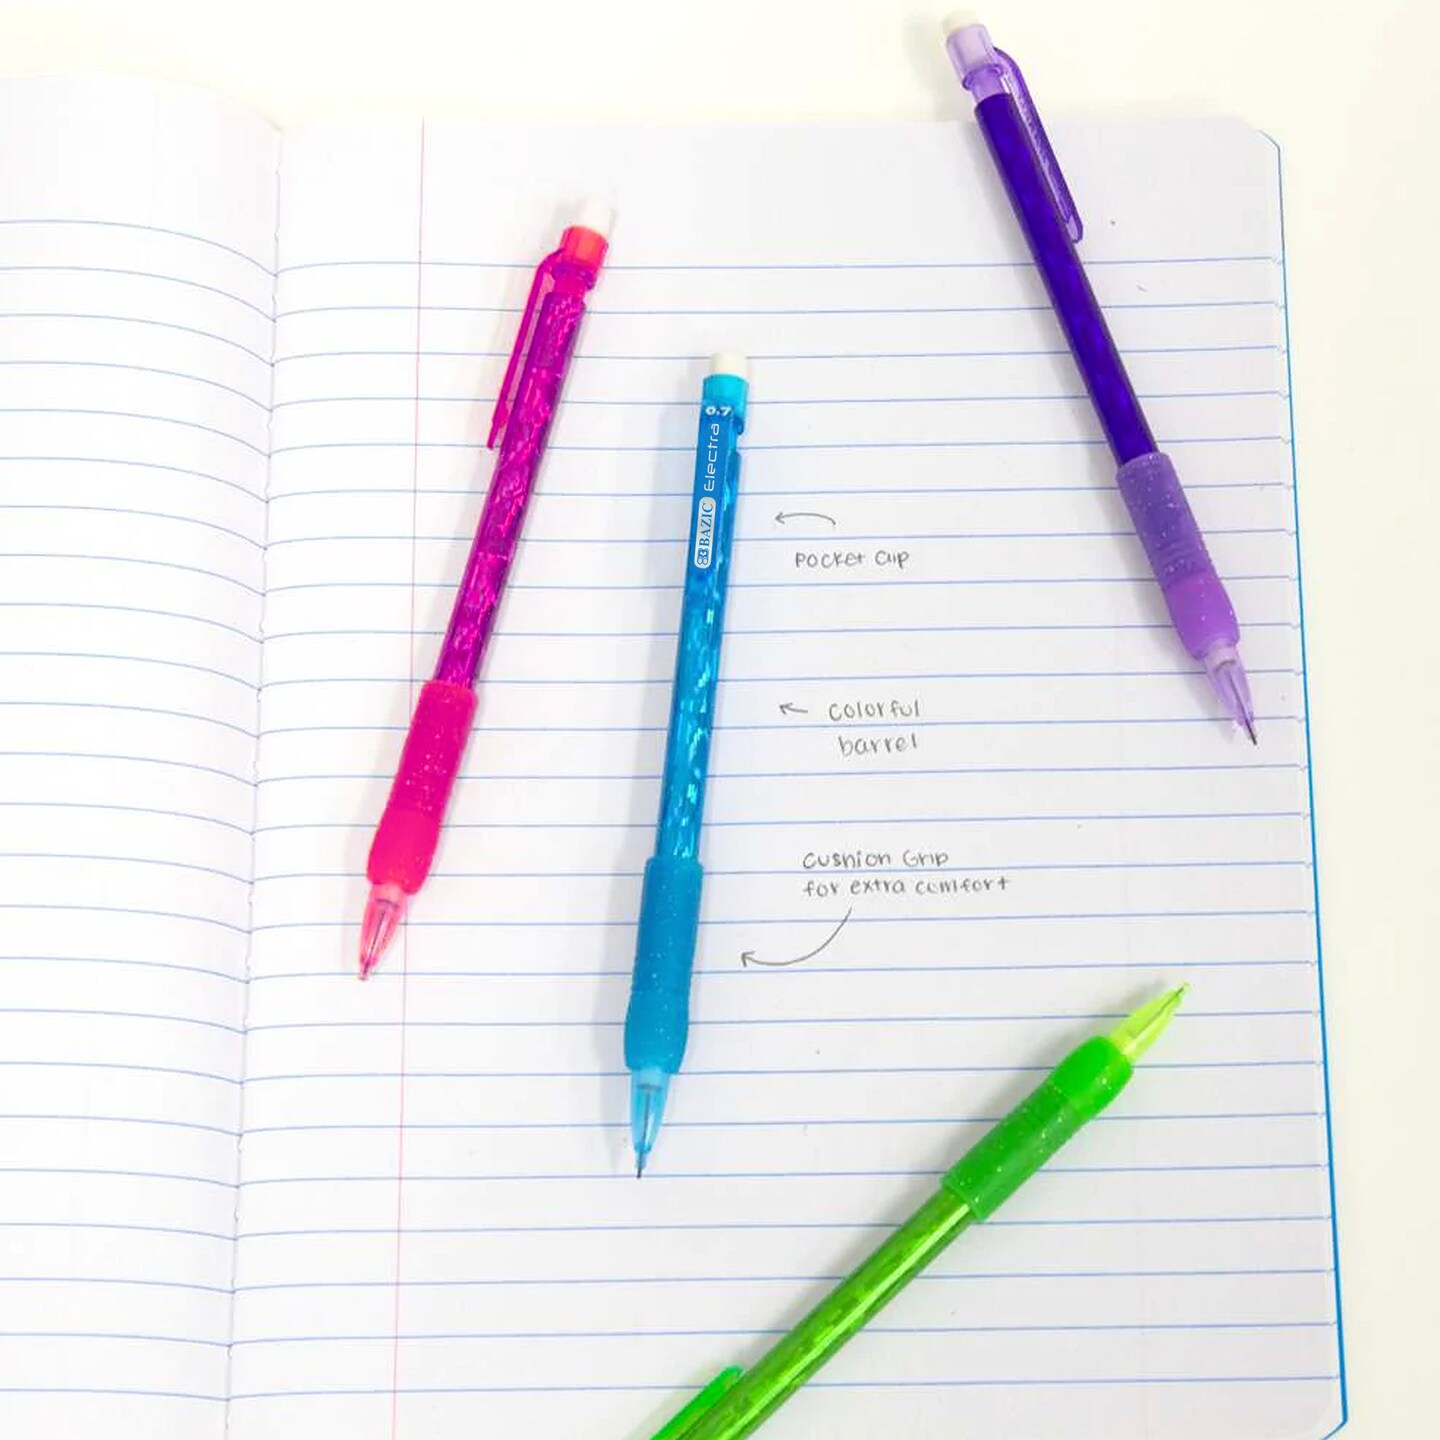 0.7
BAZIC Electra
Pocket clip
colorful
barrel
cushion Grip
for extra comfort